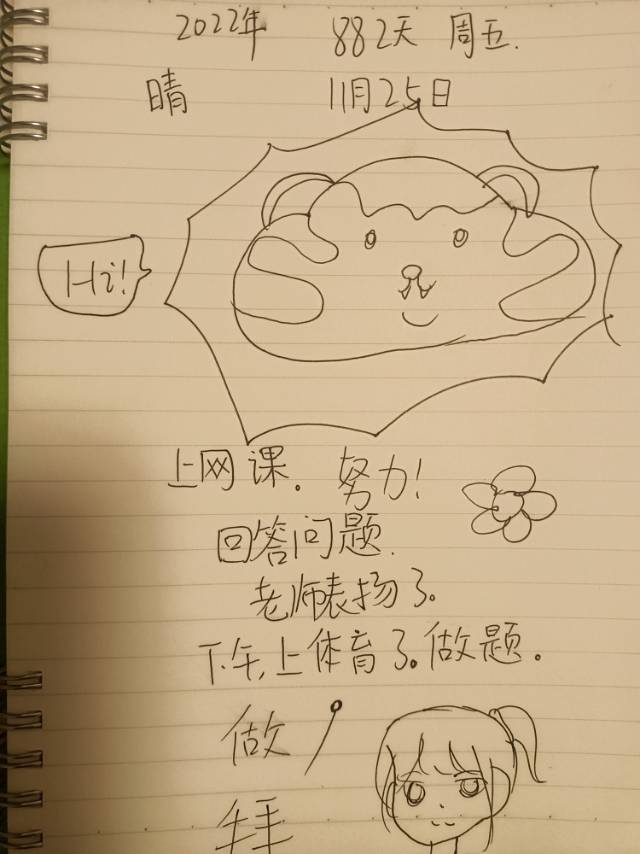 2022年 882天 周五.
晴 11月25日
Hi!
上网课。努力!
回答问题.
老师表扬了。
下午,上体育了。做题。
做